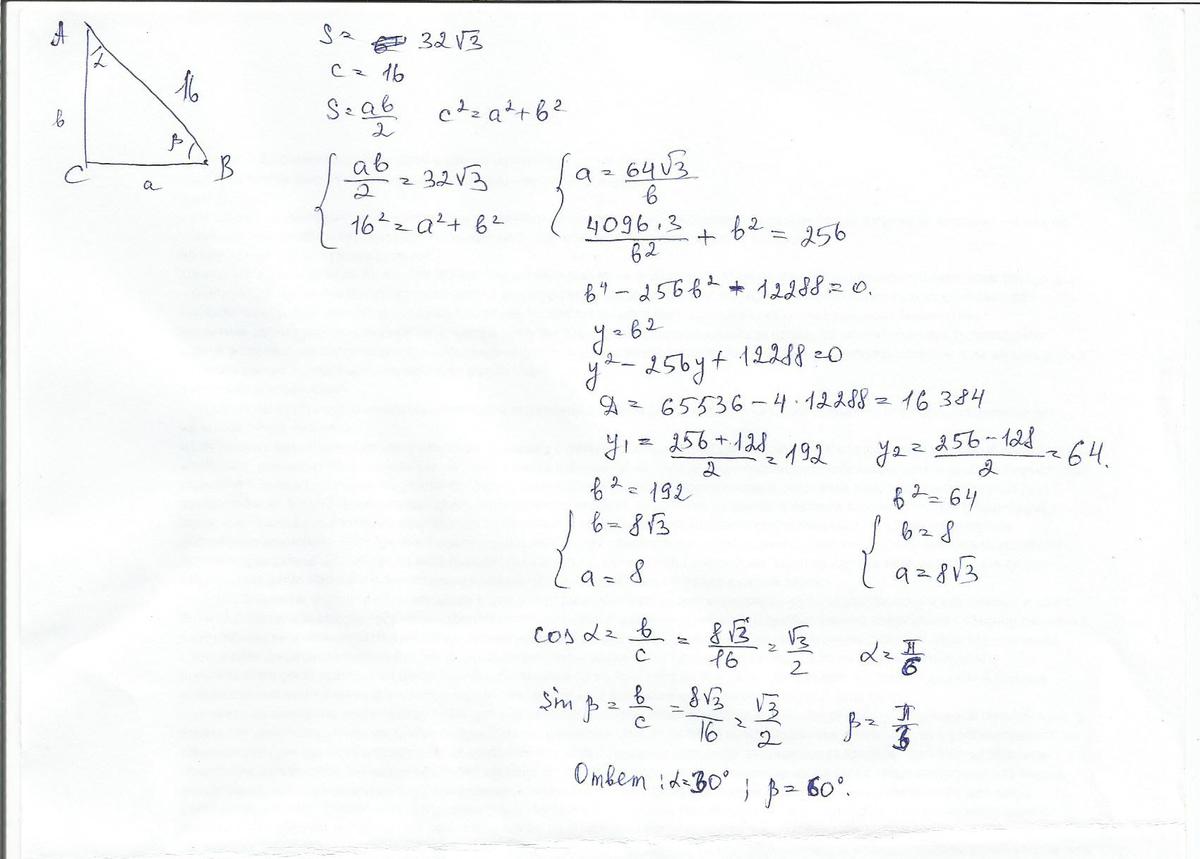 A
α
16
в
β
C
a
B
S = 32√3
c = 16
S = aв/2 c² = a² + в²
{ aв/2 = 32√3
16² = a² + в²
{ a = 64√3/в
4096·3/в² + в² = 256
в⁴ – 256в² + 12288 = 0.
y = в²
y² – 256y + 12288 = 0
Д = 65536 – 4·12288 = 16384
y₁ = (256 + 128)/2 = 192 y₂ = (256 – 128)/2 = 64.
в² = 192 в² = 64
{ в = 8√3 { в = 8
a = 8 a = 8√3
cos α = в/c = 8√3/16 = √3/2 α = π/6
sin β = в/c = 8√3/16 = √3/2 β = π/3
Ответ: α = 30°; β = 60°.